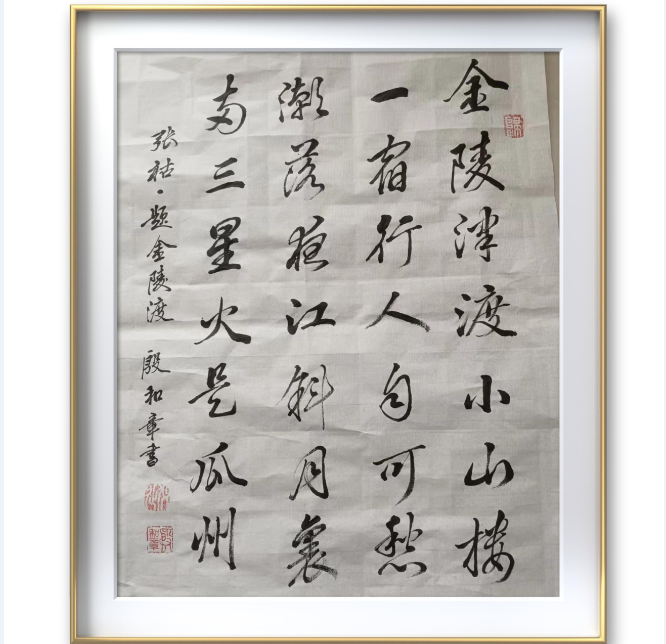 金陵津渡小山楼
一宿行人自可愁
潮落夜江斜月裏
两三星火是瓜州
张祜·题金陵渡 殷和章書